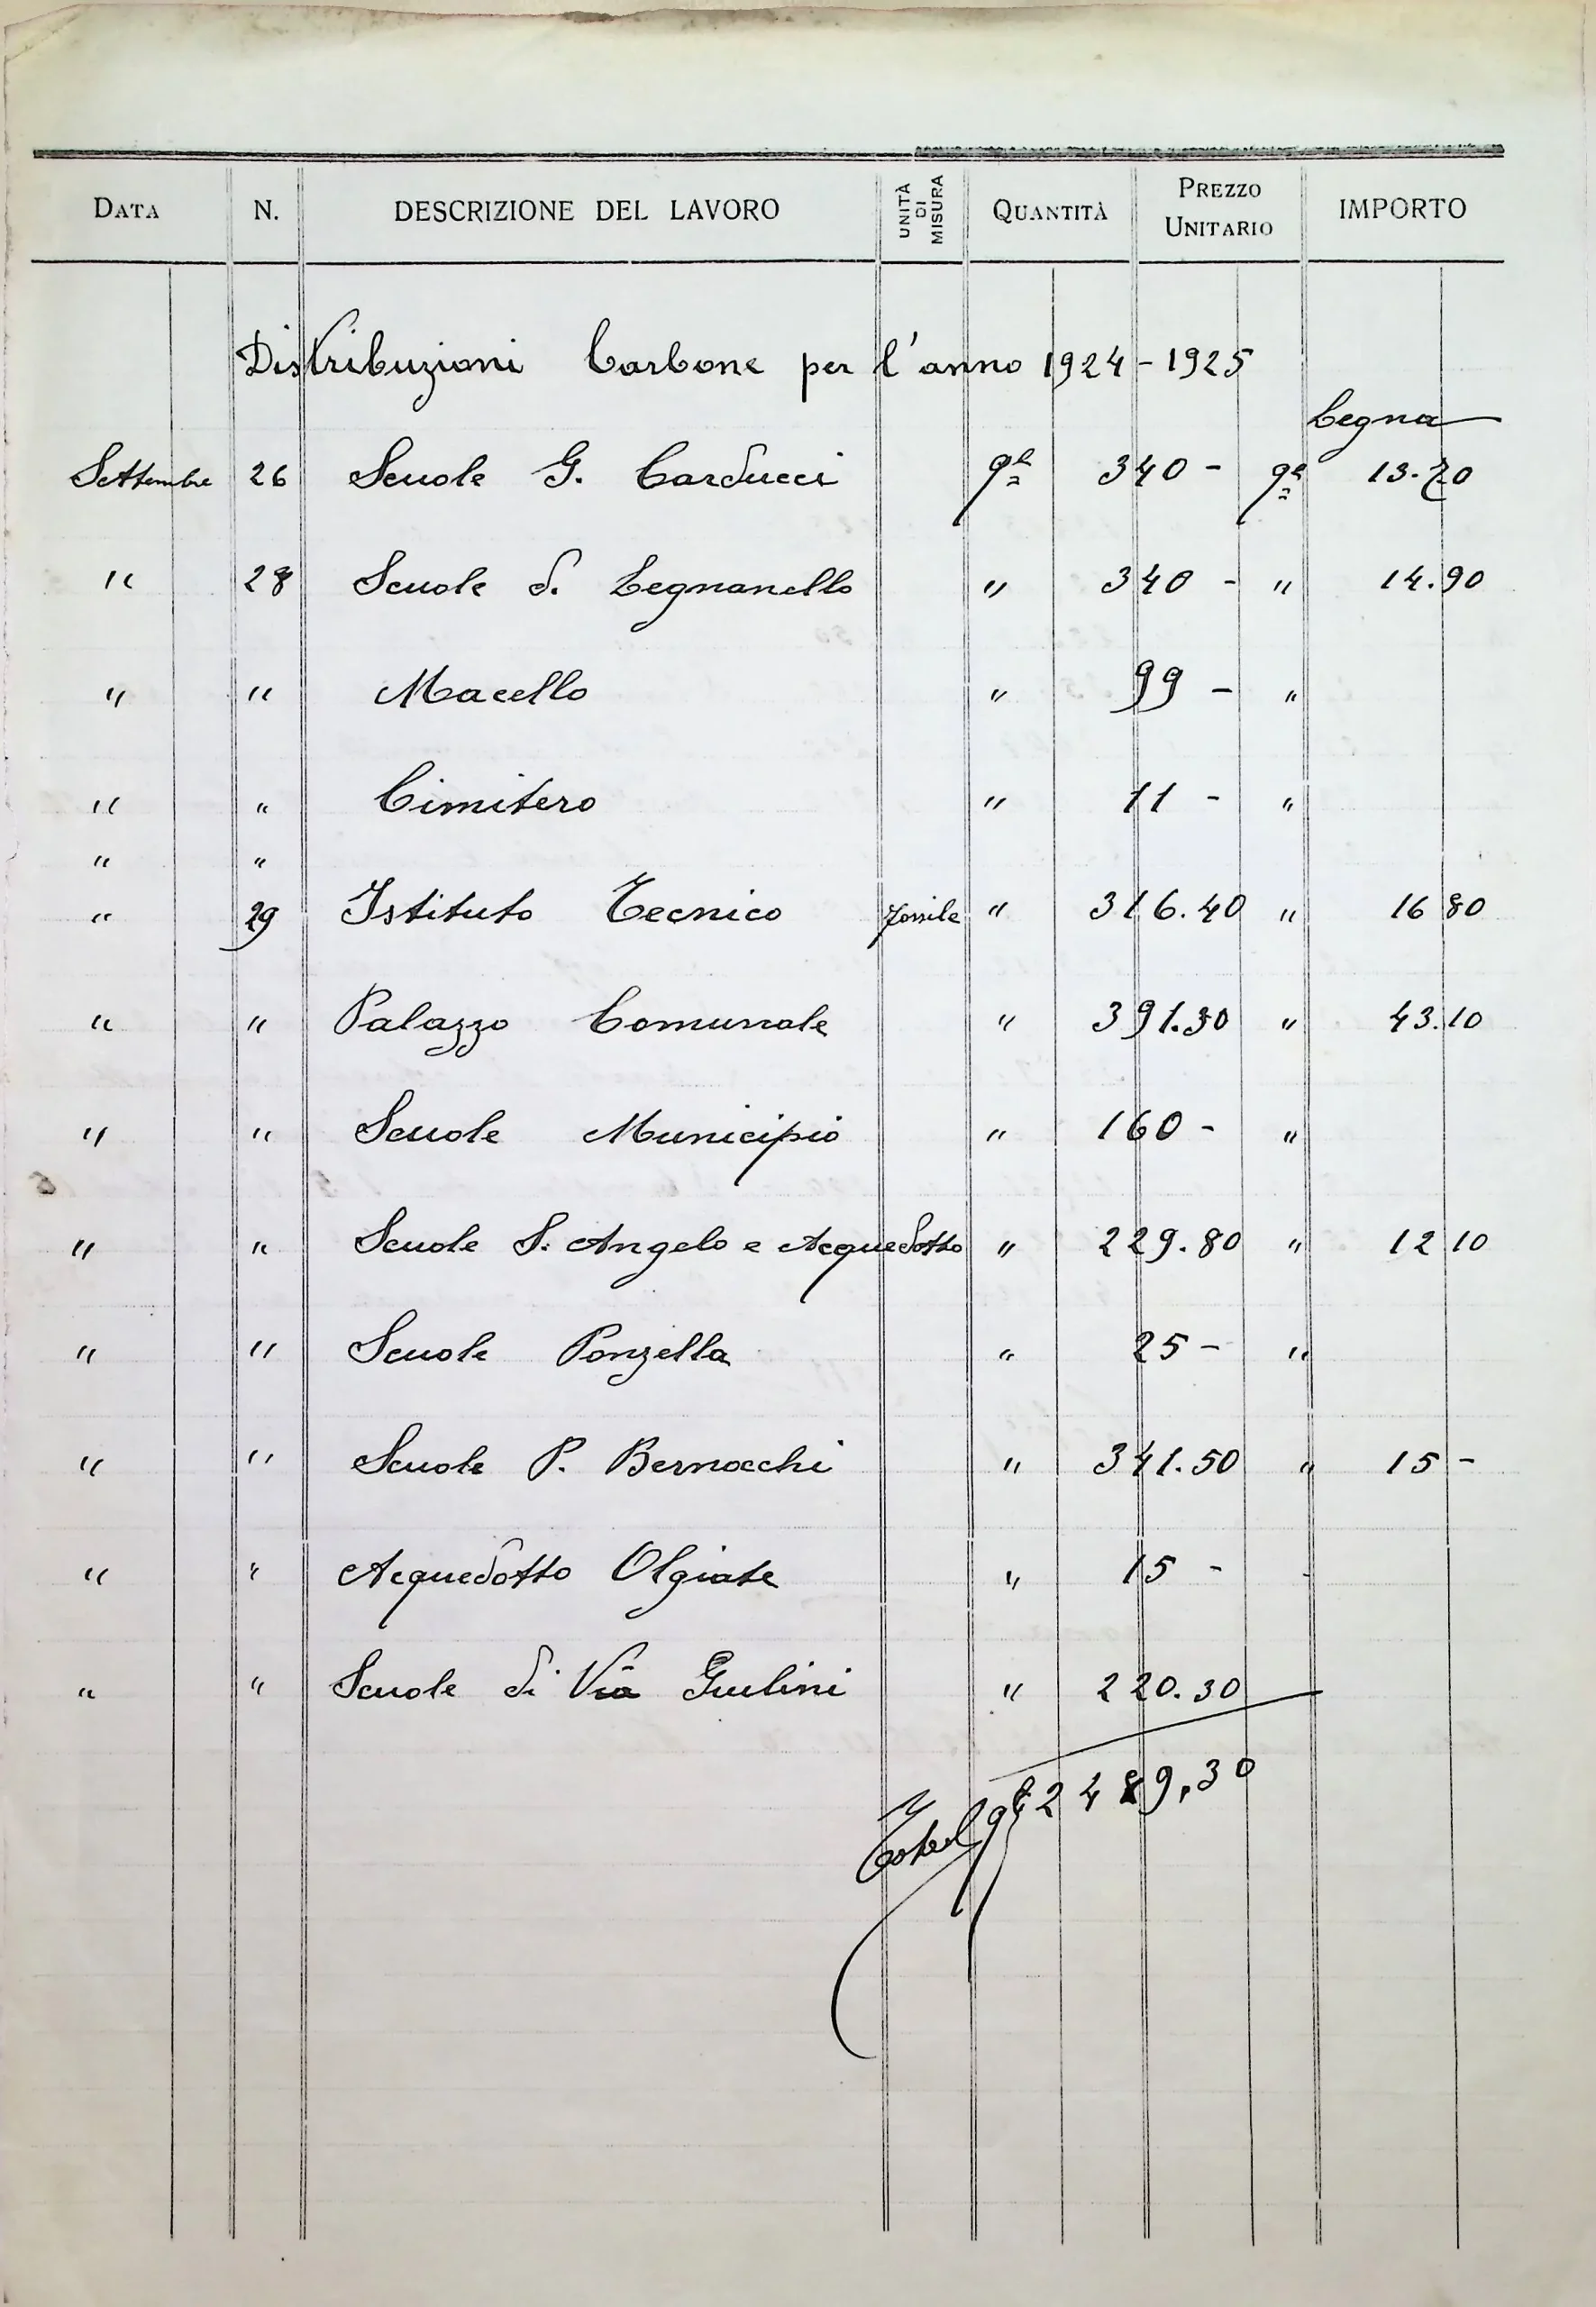 DATA N. DESCRIZIONE DEL LAVORO UNITÀ DI MISURA QUANTITÀ PREZZO UNITARIO IMPORTO
Distribuzioni Carbone per l'anno 1924-1925
Legna
Settembre 26 Scuole G. Carducci ql 340 - ql 13.20
" 28 Scuole d. Legnanello " 340 - " 14.90
" " Macello " 99 - "
" " Cimitero " 11 - "
" "
" 29 Istituto Tecnico " 316.40 " 16 80
" " Palazzo Comunale " 391.30 " 43.10
" " Scuole Municipio " 160 - "
" " Scuole S. Angelo e Acquedotto " 229.80 " 12 10
" " Scuole Ponzella " 25 - "
" " Scuole P. Bernocchi " 341.50 " 15 -
" " Acquedotto Olgiate " 15 -
" " Scuole di Via Guilini " 220.30
Total ql 2489,30